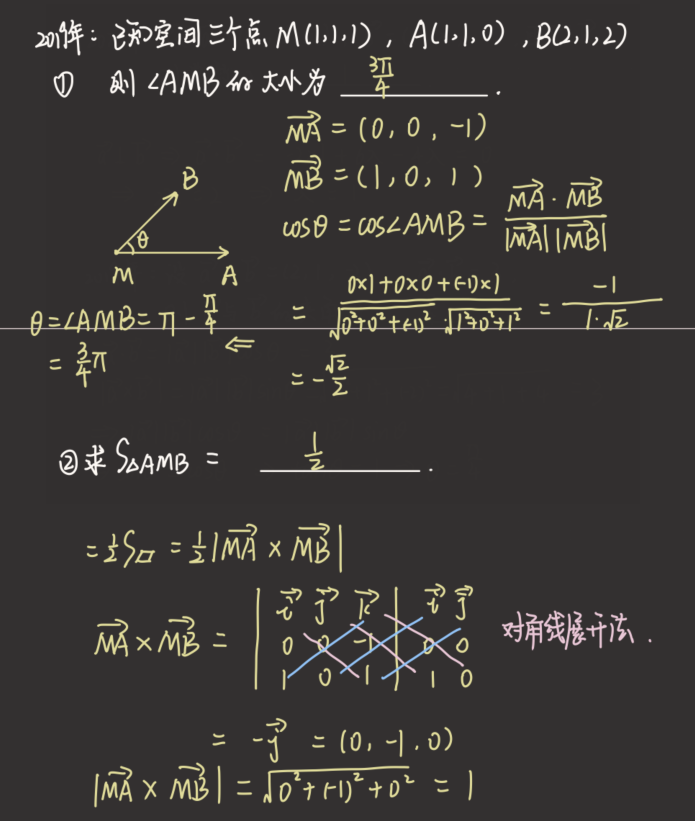 2019年：已知空间三个点 M(1,1,1) , A(1,1,0) , B(2,1,2)
① 则 ∠AMB 的大小为 3π/4 .
→MA = (0, 0, -1)
→MB = (1, 0, 1)
cosθ = cos∠AMB = →MA · →MB / |→MA| |→MB|
B
θ
M A
= 0×1+0×0+(-1)×1 / √0²+0²+(-1)² · √1²+0²+1² = -1 / 1·√2
θ = ∠AMB = π - π/4 ⇐
= 3/4 π
= -√2/2
② 求 S△AMB = 1/2 .
= 1/2 S▱ = 1/2 |→MA × →MB|
→MA × →MB = | →i →j →k | →i →j
0 0 -1 | 0 0
1 0 1 | 1 0
对角线展开法 .
= -→j = (0, -1, 0)
|→MA × →MB| = √0²+(-1)²+0² = 1